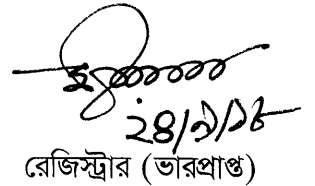 ২৪/৯/১৮
রেজিস্ট্রার (ভারপ্রাপ্ত)